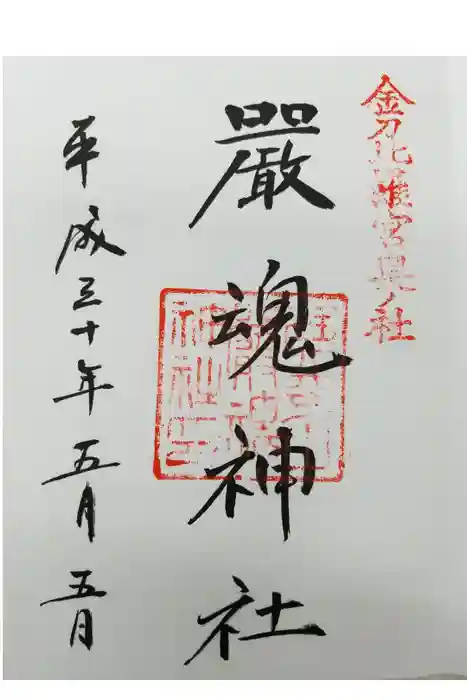 金刀比羅宮奥ノ社
嚴魂神社
平成三十年五月五日